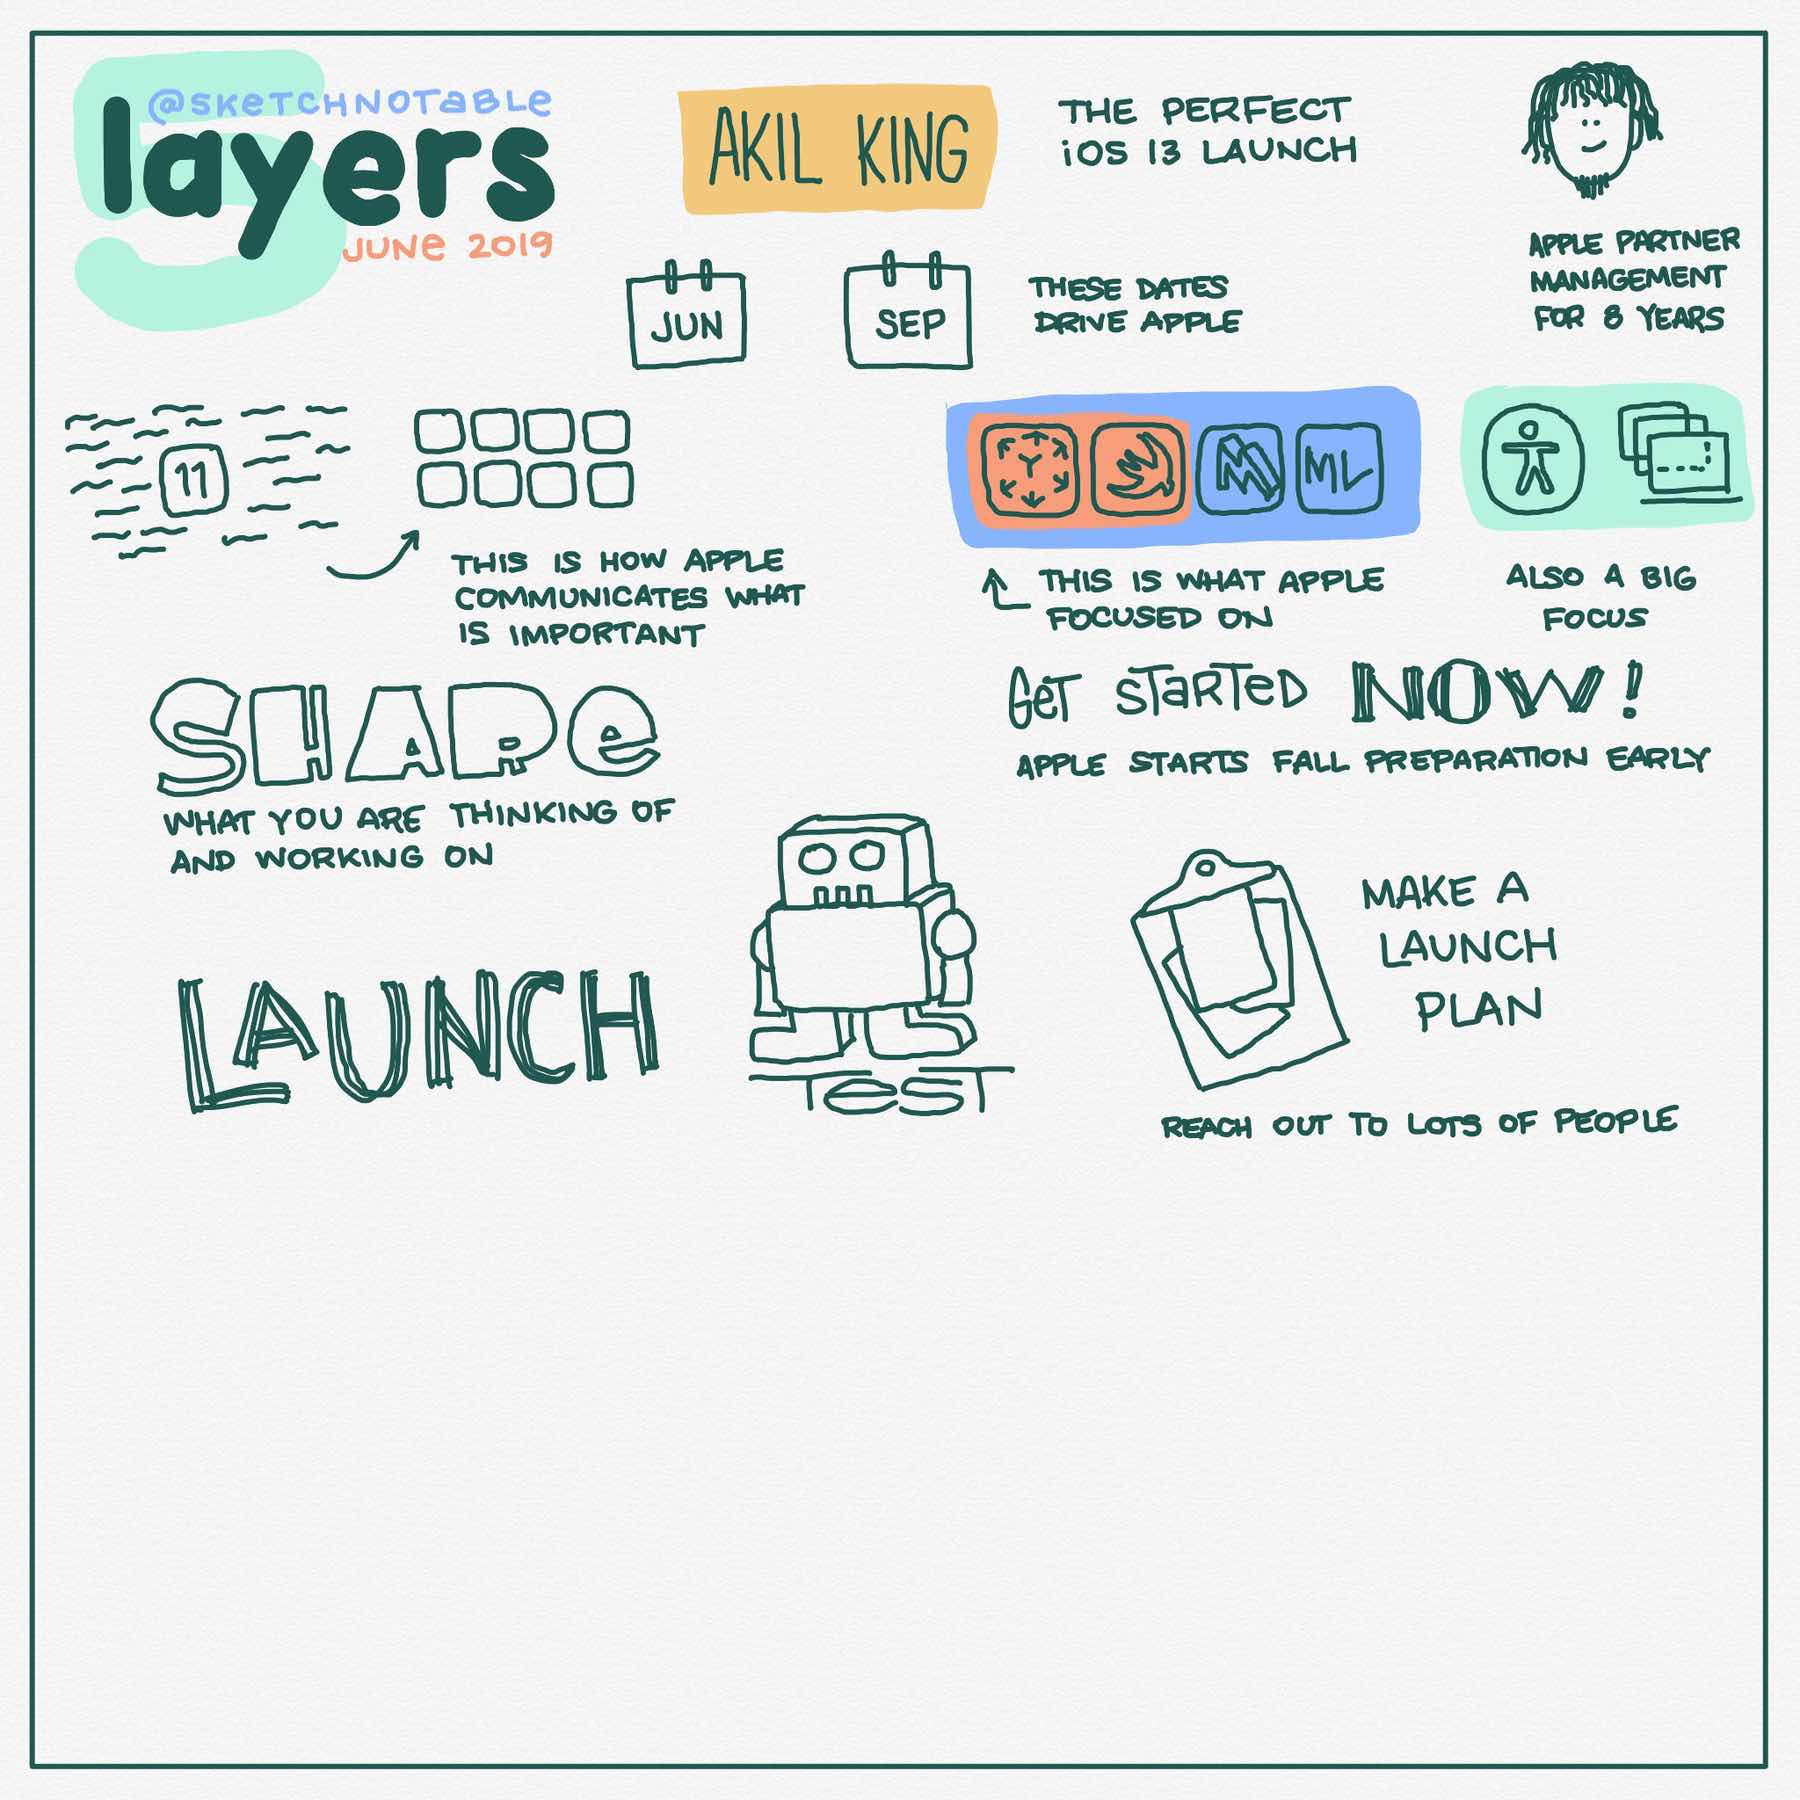 @SKETCHNOTABLE
layers
JUNE 2019
5
AKIL KING
THE PERFECT
iOS 13 LAUNCH
APPLE PARTNER
MANAGEMENT
FOR 8 YEARS
JUN
SEP
THESE DATES
DRIVE APPLE
11
THIS IS HOW APPLE
COMMUNICATES WHAT
IS IMPORTANT
ML
THIS IS WHAT APPLE
FOCUSED ON
ALSO A BIG
FOCUS
SHARE
WHAT YOU ARE THINKING OF
AND WORKING ON
GET STARTED NOW!
APPLE STARTS FALL PREPARATION EARLY
LAUNCH
MAKE A
LAUNCH
PLAN
REACH OUT TO LOTS OF PEOPLE